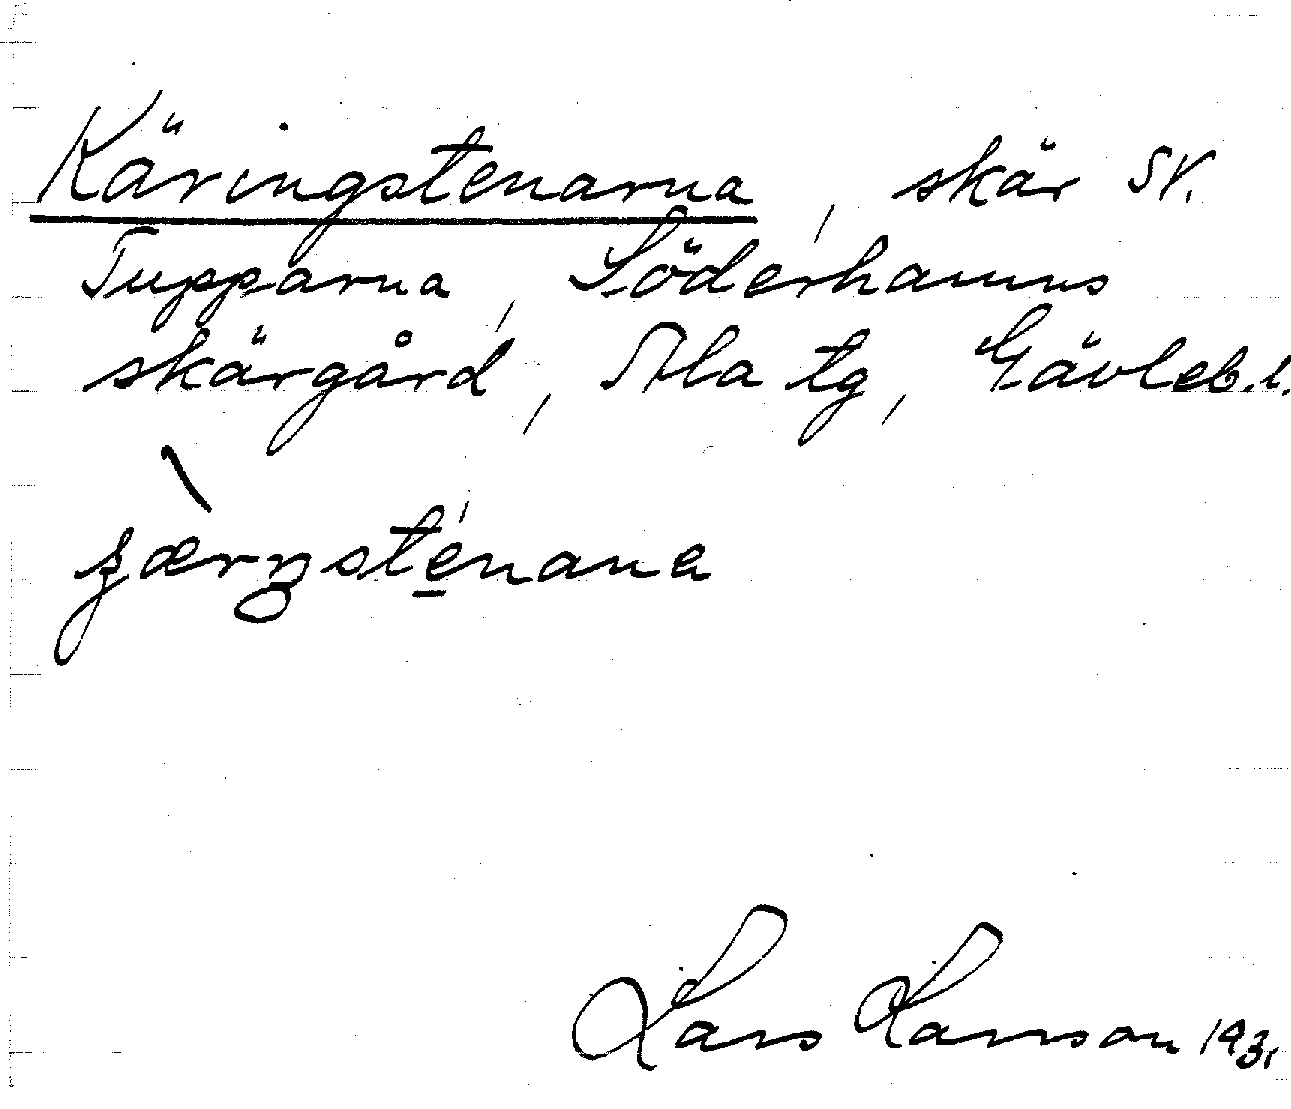 Käringstenarna, skär SV.
Tupparna, Söderhamns
skärgård, Ala tg, Gävleb.l.
Lars Larsson 1931